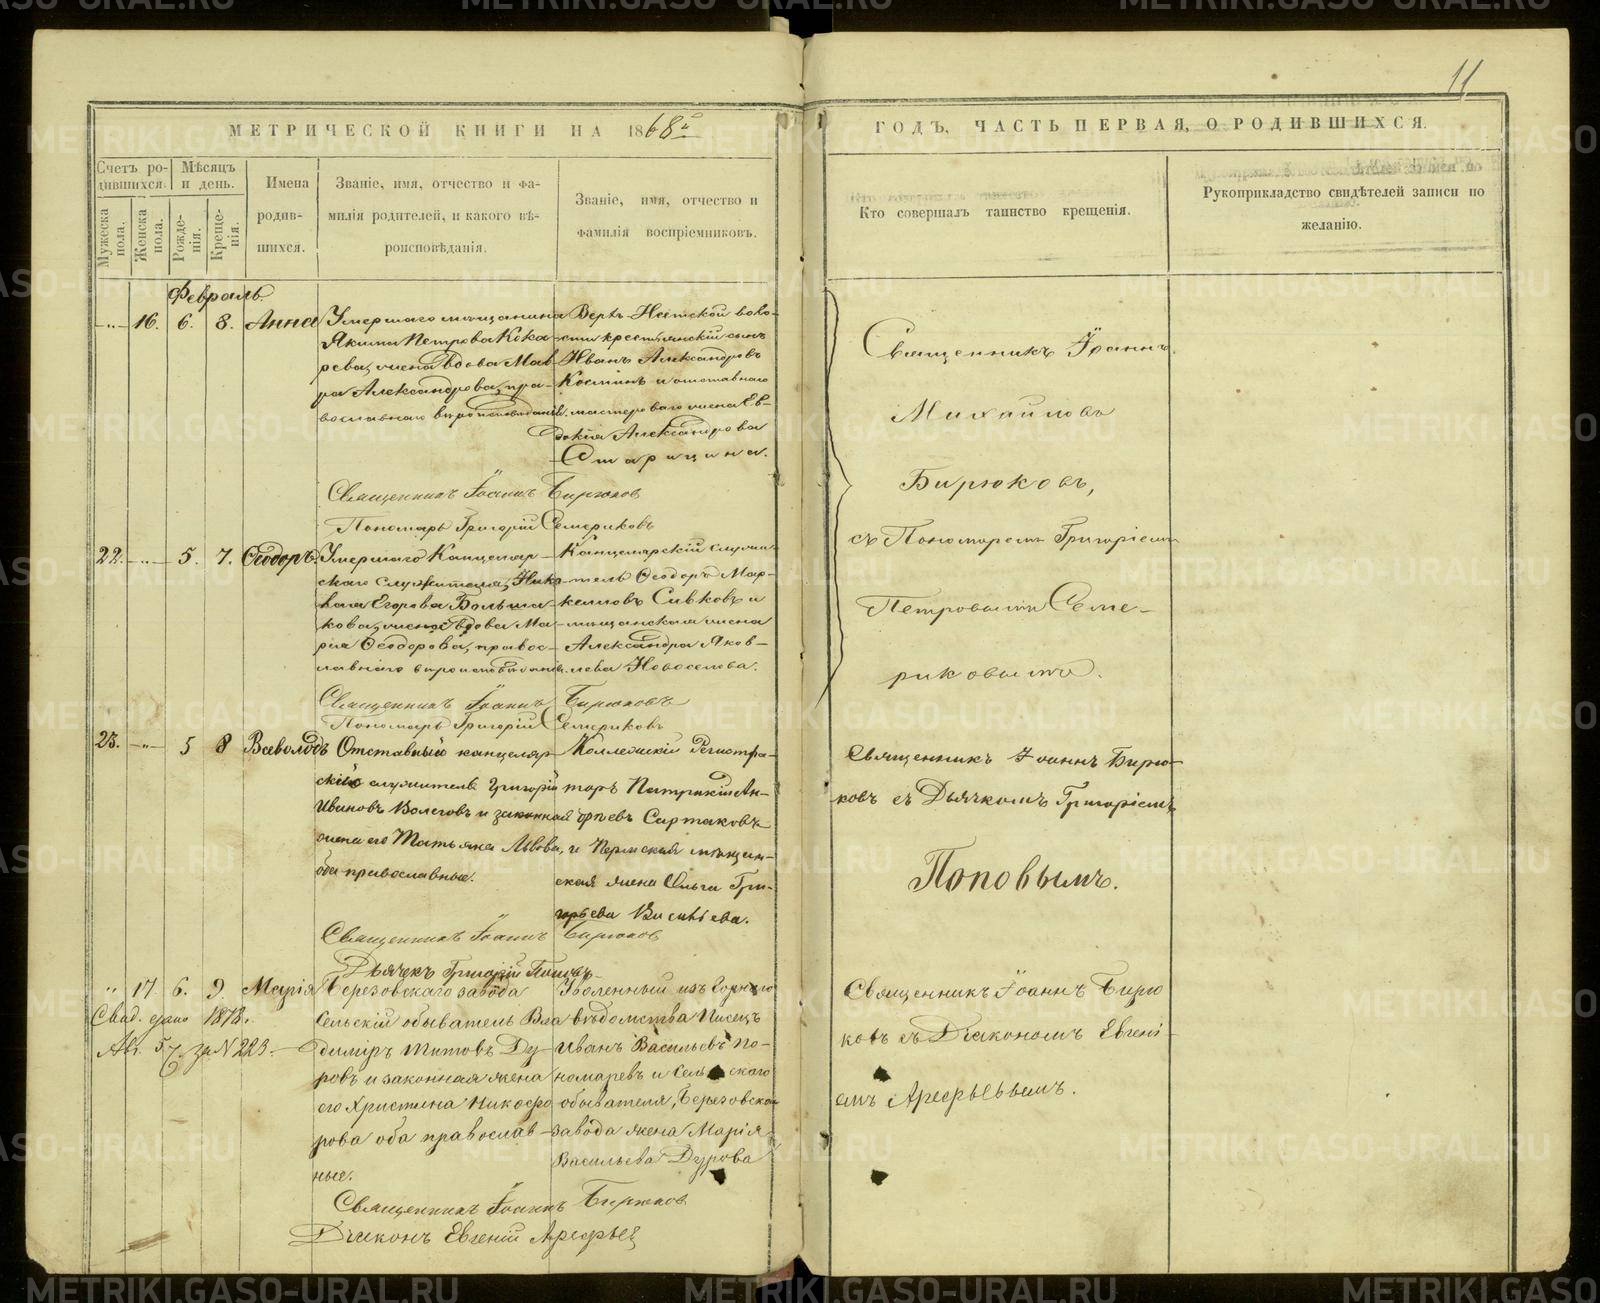 11
МЕТРИЧЕСКОЙ КНИГИ НА 1868й
ГОДЪ, ЧАСТЬ ПЕРВАЯ, О РОДИВШИХСЯ.
Счетъ ро-
дившихся.
Мѣсяцъ
и день.
Мужеска
пола.
Женска
пола.
Рожде-
нія.
Креще-
нія.
Имена
родив-
шихся.
Званіе, имя, отчество и фа-
милія родителей, и какого вѣ-
роисповѣданія.
Званіе, имя, отчество и
фамилія воспріемниковъ.
Кто совершалъ таинство крещенія.
Рукоприкладство свидѣтелей записи по
желанію.
Февраль
-"- 16. 6. 8. Анна
Умершаго мѣщанина
Якима Петрова Кока-
рева, жена вдова Мав-
ра Александрова, пра-
вославнаго вѣроисповѣданія.
Верхъ-Нейтской воло-
сти крестьянскій сынъ
Иванъ Александровъ
Костинъ и отставнаго
мастероваго жена Ев-
докія Александрова
Старицина.
Священникъ Іоаннъ Бирюковъ
Пономарь Григорій Семериковъ
Священникъ Іоаннъ
Михайловъ
Бирюковъ,
съ Пономаремъ Григоріемъ
Петровымъ Семе-
риковымъ.
22. -"- 5. 7. Ѳеодоръ.
Умершаго Канцеляр-
скаго служителя, Нико-
лая Егорова Больша-
кова, жена вдова Ма-
рія Ѳеодорова, правос-
лавнаго вѣроисповѣданія.
Канцелярскій служи-
тель Ѳеодоръ Мар-
келловъ Сивковъ и
мѣщанская жена
Александра Яков-
лева Новоселова.
Священникъ Іоаннъ Бирюковъ
Пономарь Григорій Семериковъ
23. -"- 5 8 Всеволодъ
Отставный канцеляр-
скій служитель Григорій
Ивановъ Волеговъ и законная
жена его Татьяна Львова,
оба православные.
Коллежскій Регистра-
торъ Патрикій Ан-
дреевъ Сартаковъ
и Пермская мѣщан-
ская жена Ольга Гри-
горьева Васильева.
Священникъ Іоаннъ Бирюковъ
Дьячекъ Григорій Поповъ
Священникъ Іоаннъ Бирю-
ковъ съ Дьячкомъ Григоріемъ
Поповымъ.
" 17. 6. 9. Марія
Свид. дано 1873г.
Авг. 57. за № 223.
Березовскаго завода
Сельскій обыватель Вла-
димiръ Титовъ Ду-
ровъ и законная жена
его Христина Никифо-
рова оба православ-
ные.
Уволенный изъ Горнаго
вѣдомства Писецъ
Иванъ Васильевъ По-
номаревъ и Сельскаго
обывателя, Березовскаго
завода жена Марія
Васильева Дурова
Священникъ Іоаннъ Бирюковъ
Діаконъ Евгеній Арефьевъ
Священникъ Іоаннъ Бирю
ковъ съ Діакономъ Евгені-
емъ Арефьевымъ.
METRIKI.GASO-URAL.RU